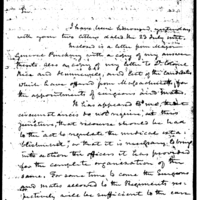 Sir
I have been honoured, yesterday
with your two letters dated the 23 July inst.
Inclosed is a letter from Major
General Pinckney with a copy of my answer
thereto, also a copy of my letter to Dr
and Hunnewell, and list of the Candidates
which have offered from Massachusetts for
the appointments of surgeons and mates.
It has appeared to me, that
circumstances do not require, at this
juncture, that recourse should be had
to the act to regulate the medical esta-
blishment, or that it is necessary to bring
into action the officers it has provided
for the complete organization of the
same. For some time to come the Surgeons
and mates allowed to the Regiments res-
pectively will be sufficient to the care